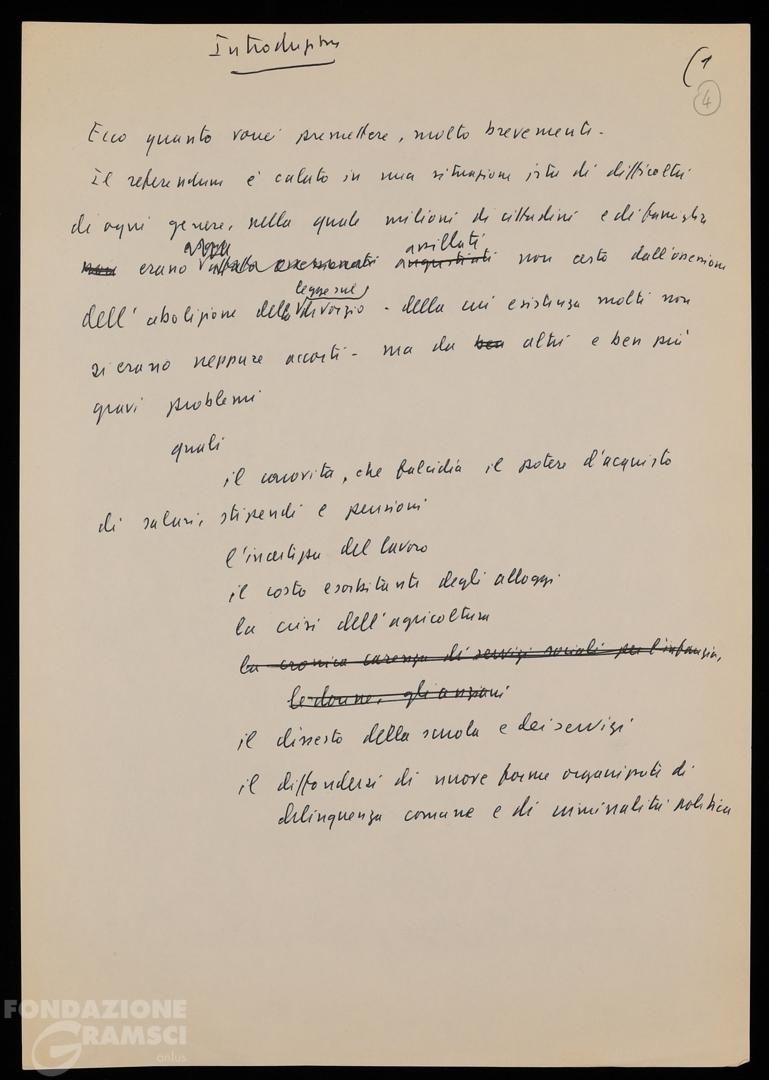 Introduzione
(1
4
Ecco quanto vorrei premettere, molto brevemente.
Il referendum è calato in una situazione irta di difficoltà
di ogni genere, nella quale milioni di cittadini e di famiglie
assillati
non erano ossessionati angustiati non certo dall'ossessione
legge sul
dell'abolizione della divorzio - della cui esistenza molti non
si erano neppure accorti - ma da ben altri e ben più
gravi problemi
quali
il carovita, che falcidia il potere d'acquisto
di salari, stipendi e pensioni
l'incertezza del lavoro
il costo esorbitante degli alloggi
la crisi dell'agricoltura
la cronica carenza di servizi sociali per l'infanzia,
le donne, gli anziani
il dissesto della scuola e dei servizi
il diffondersi di nuove forme organizzate di
delinquenza comune e di criminalità politica
FONDAZIONE
GRAMSCI
onlus